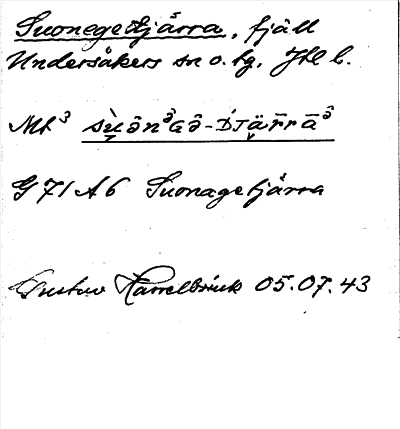 Suonegetjårra, fjäll
Undersåkers sn o. tg, Jtl l.
Mt³ sù̯ə̂nᵌGə̂-D́ᴊä̯r̄rāᵌ
G 71 A 6 Suonagetjårra
Gustav Hasselbrink 05.07.43